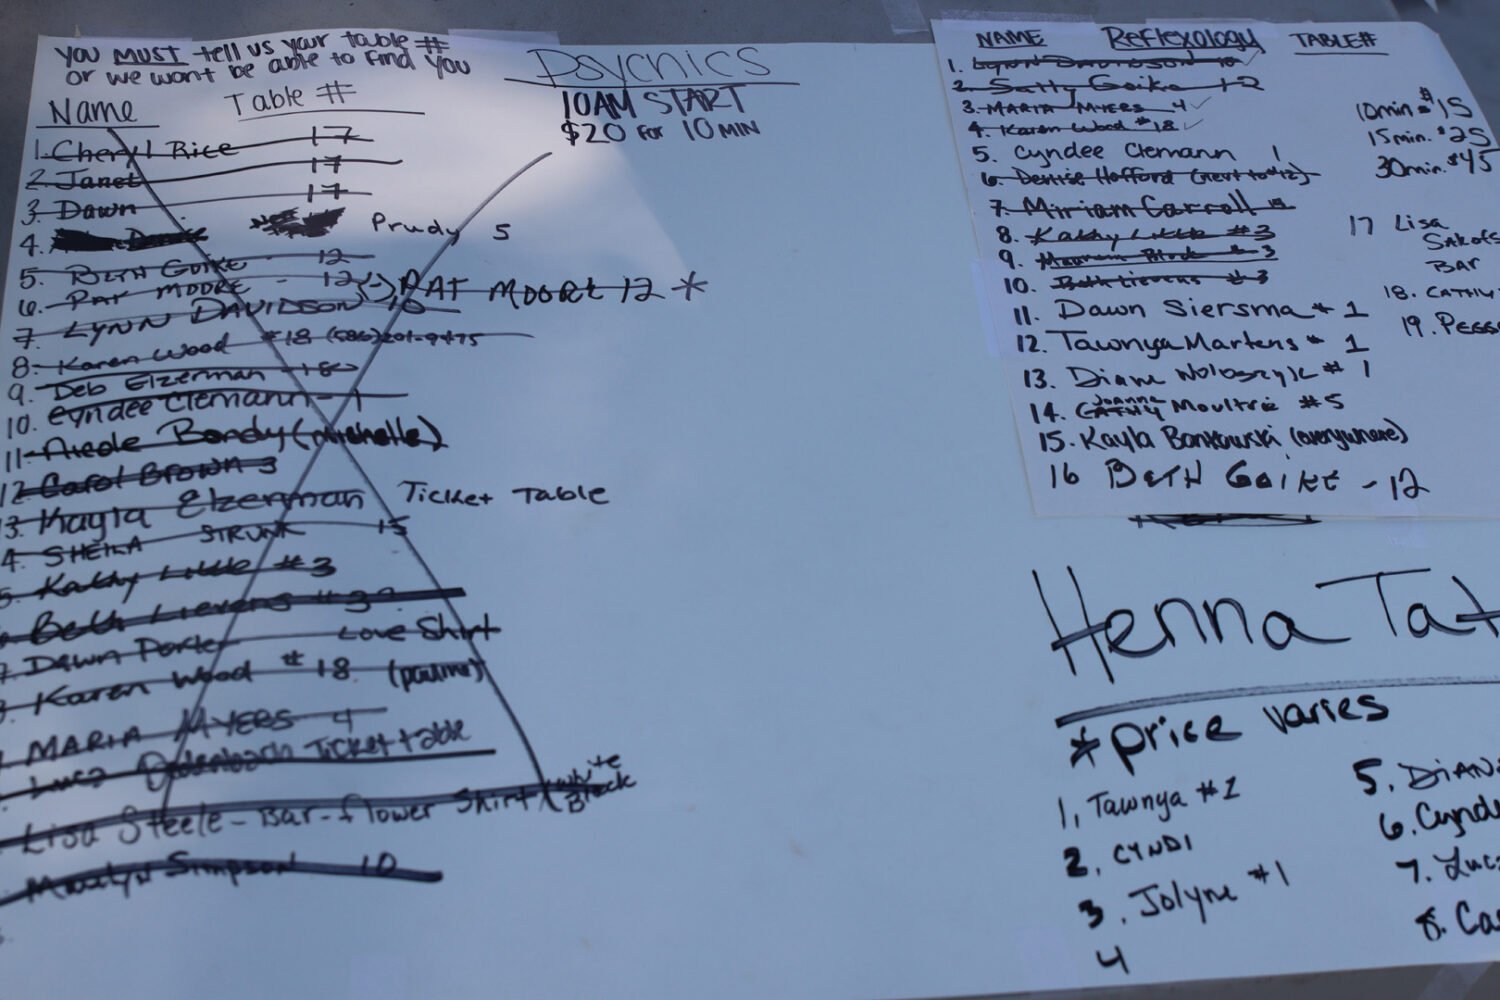 You MUST tell us your table #
or we wont be able to find you
Name Table #
1. Cheryl Rice 17
2. Janet 17
3. Dawn 17
4. Prudy 5
5. BETH GOIKE - 12
6. PAT MOORE - 12 PAT MOORE 12 *
7. LYNN DAVIDSON 10
8. Karen Wood #18
9. Deb Elzerman 18
10. Cyndee Clemann - 1
11. Nicole Bondy (Michelle)
12 Carol Brown 3
13. Kayla Elzerman Ticket Table
4. SHEILA STRUNK 15
5. Kathy Little #3
Beth Lievens #3
7. Dawn Porter Love Shirt
Karen Wood #18
MARIA MYERS 4
Luca Odenbach Ticket table
Lisa Steele - Bar - flower Shirt white Black
Marilyn Simpson 10
Psychics
10AM START
$20 for 10 MIN
NAME Reflexology TABLE#
1. Lynn Davidson 10
2. Sally Goike 12
3. MARIA MYERS 4
4. Karen Wood #18
5. Cyndee Clemann 1
6. Denise Hofford (next to #12)
7. Miriam Carroll
8. Kathy Little #3
9. Maureen
10. Beth Lievens #3
11. Dawn Siersma # 1
12. Tawnya Martens - 1
13. Diane # 1
14. Joanne CATHY Moultrie #5
15. Kayla Bankowski (everywhere)
16 BETH GOIKE - 12
10min $15
15min. $25
30min. $45
17 Lisa
BAR
18. CATHY
19.
Henna Tat
* price varies
1, Tawnya #1
2. CYNDI
3. Jolyne #1
4
5. DIAN
6. Cynde
7. Luc
8. Ca